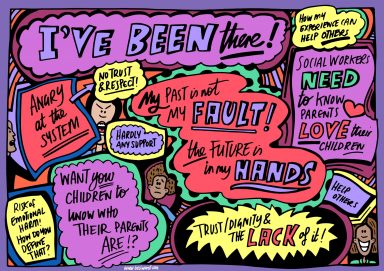 I'VE BEEN there!
How my
EXPERIENCE CAN
HELP OTHERS
NO TRUST
& RESPECT!
SOCIAL WORKERS
NEED
to KNOW
PARENTS
LOVE their
CHILDREN
ANGRY
at the
SYSTEM
My PAST is not
MY FAULT!
the FUTURE is
in my HANDS
HARDLY
ANY SUPPORT
WANT you
CHILDREN to
KNOW WHO
THEIR PARENTS
ARE!?
HELP
OTHERS
RISK of
EMOTIONAL
HARM!
HOW DO YOU
DEFINE
THAT?
TRUST/DIGNITY &
THE LACK of it!